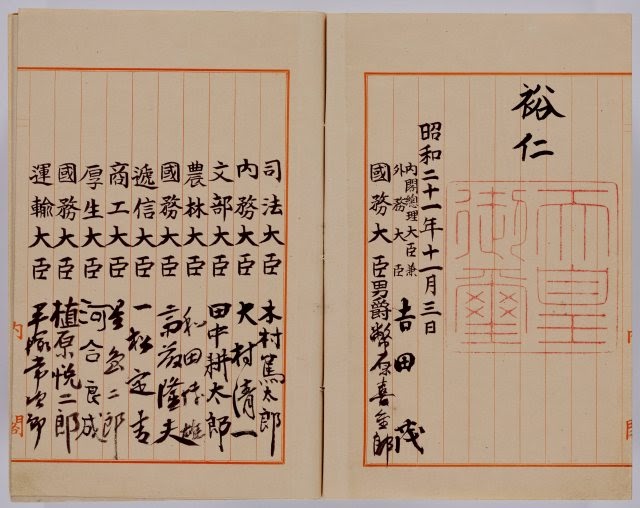 裕仁
天皇
御璽
昭和二十一年十一月三日
内閣總理大臣兼
外務大臣 吉田茂
國務大臣 男爵 幣原喜重郎
司法大臣 木村篤太郎
内務大臣 大村清一
文部大臣 田中耕太郎
農林大臣 和田博雄
國務大臣 斎藤隆夫
遞信大臣 一松定吉
商工大臣 星島二郎
厚生大臣 河合良成
國務大臣 植原悦二郎
運輸大臣 平塚常次郎
内閣